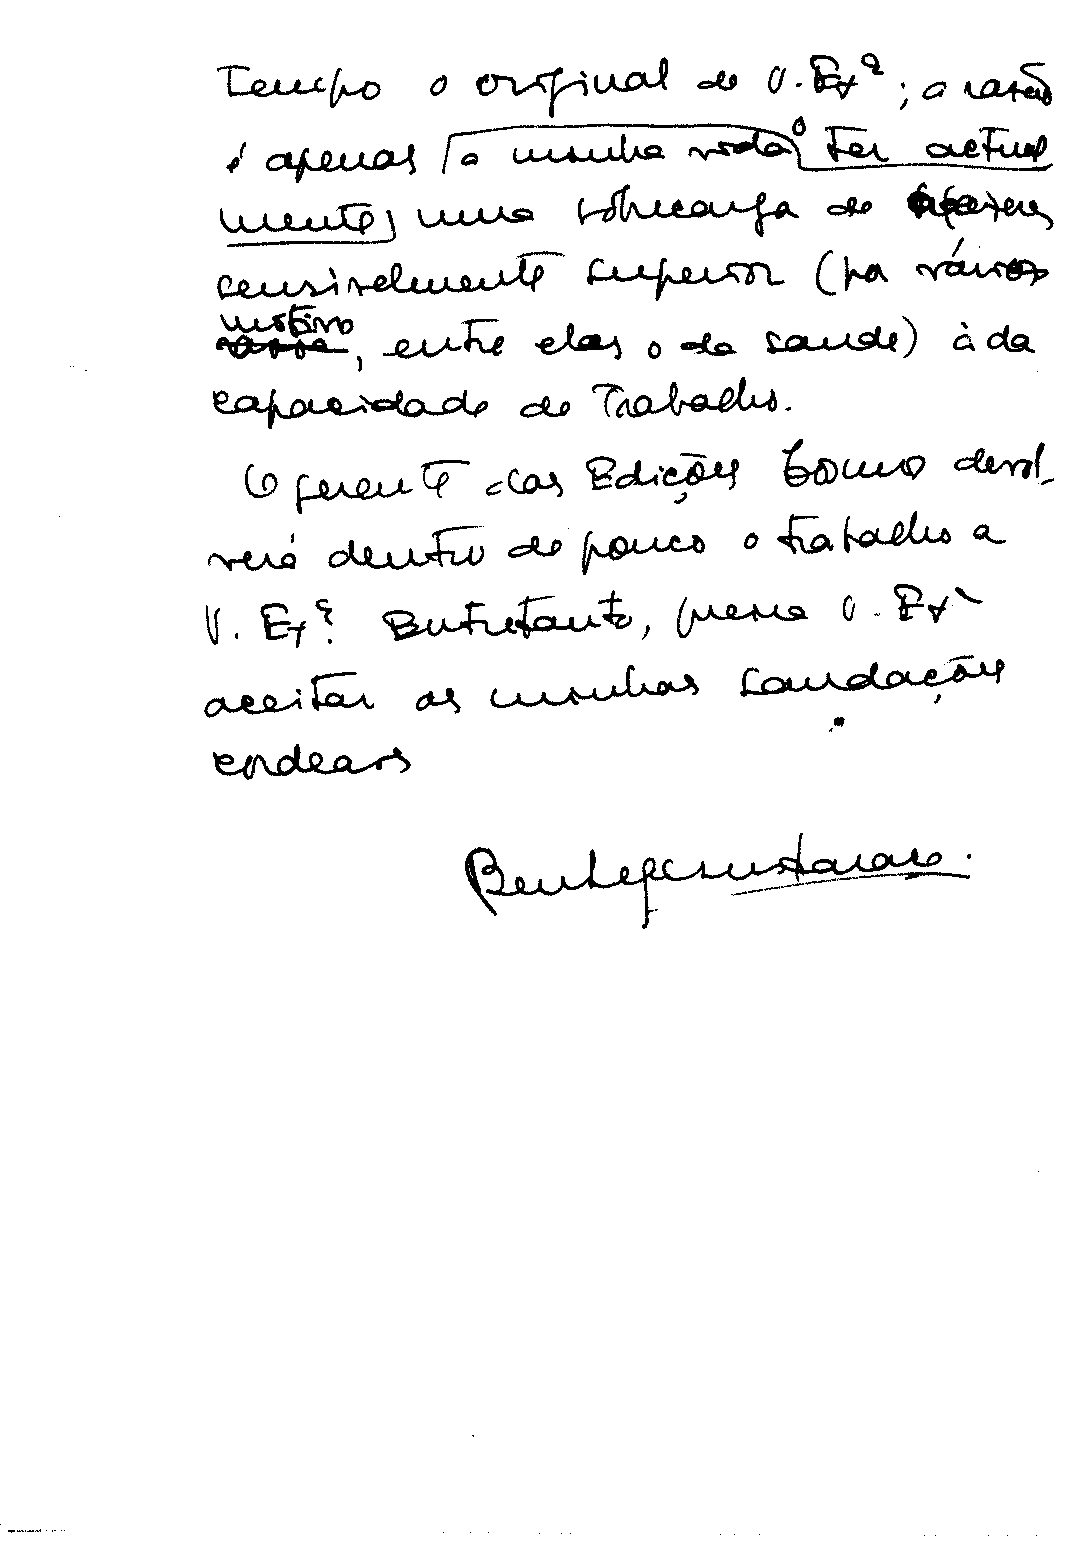 tempo o original de V. Exª; a razão
é apenas a minha vida ter actual
mente uma sobrecarga de
sensivelmente superior (por vários
motivo, entre elas o da saude) à da
capacidade de trabalho.
O gerente das Edições Cosmo devol-
verá dentro de pouco o trabalho a
V. Exª. Entretanto, queira V. Exª
aceitar as minhas saudações
cordeais